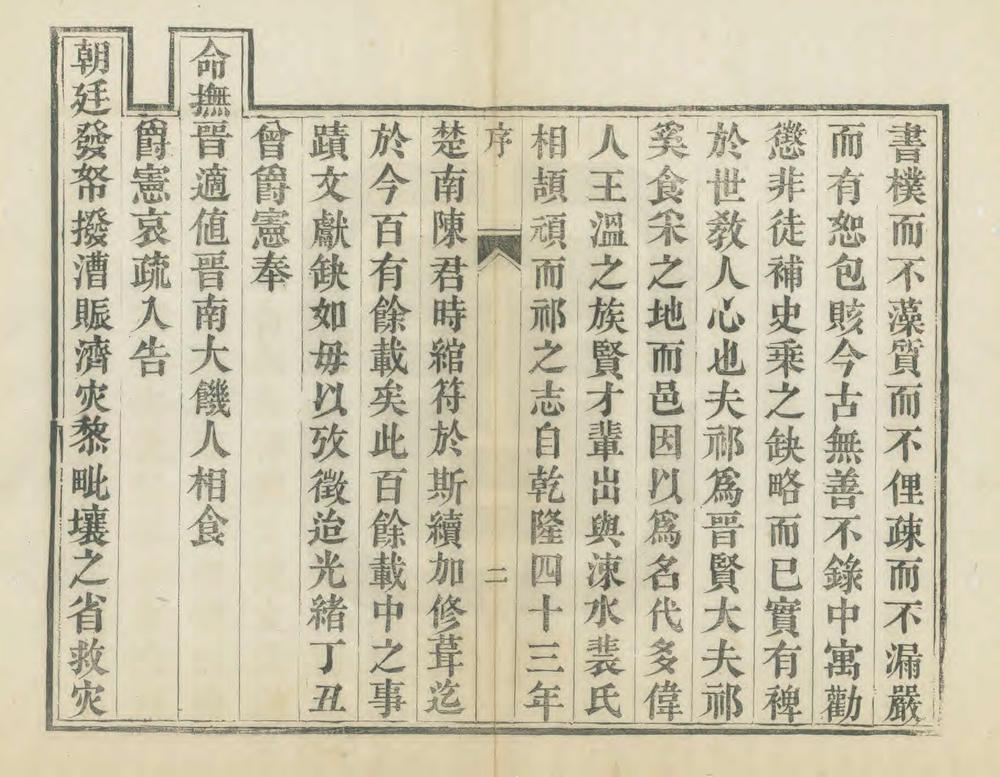 書樸而不藻質而不俚疎而不漏嚴
而有恕包賅今古無善不錄中寓勸
懲非徒補史乘之缺略而已實有裨
於世教人心也夫祁爲晉賢大夫祁
奚食采之地而邑因以爲名代多偉
人王溫之族賢才輩出與涑水裴氏
相頡頏而祁之志自乾隆四十三年
序
二
楚南陳君時綰符於斯續加修葺迄
於今百有餘載矣此百餘載中之事
蹟文獻缺如毋以攷徵迨光緒丁丑
曾爵憲奉
命撫晉適値晉南大饑人相食
爵憲哀疏入告
朝廷發帑撥漕賑濟灾黎毗壤之省救灾